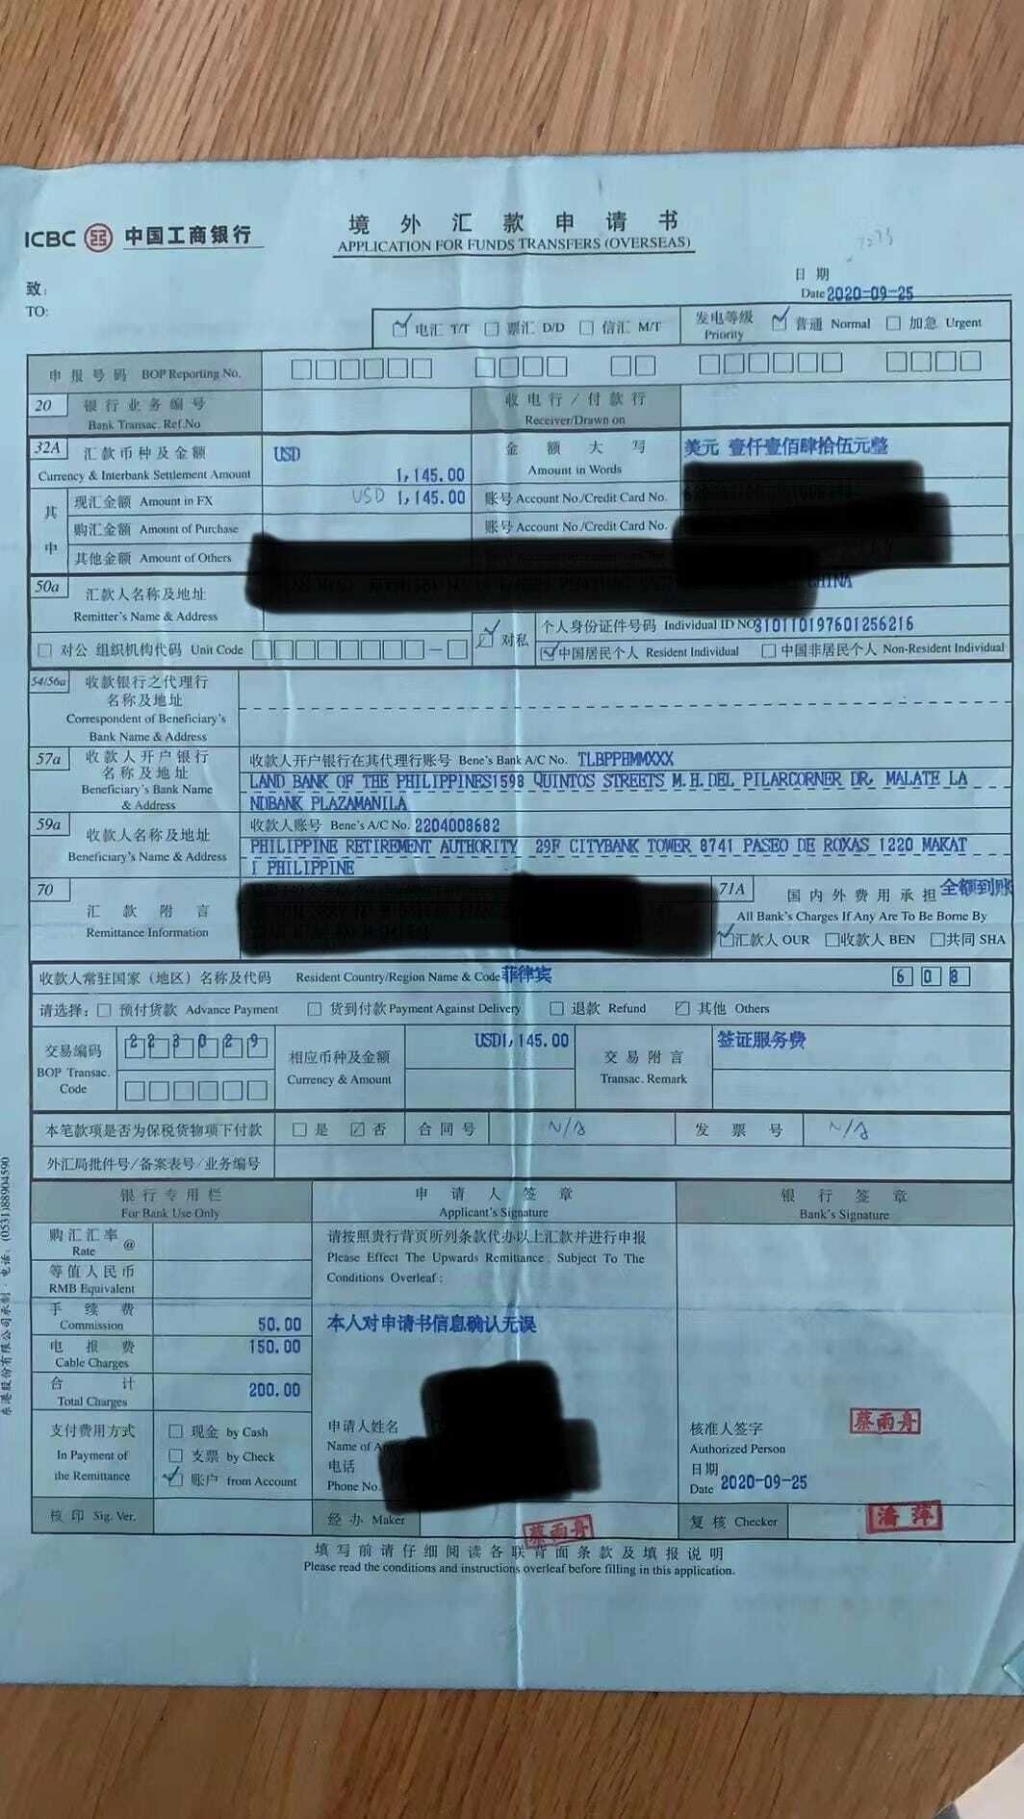 ICBC 中国工商银行
境外汇款申请书
APPLICATION FOR FUNDS TRANSFERS (OVERSEAS)
致:
TO:
日期
Date 2020-09-25
电汇 T/T 票汇 D/D 信汇 M/T 发电等级 Priority 普通 Normal 加急 Urgent
申报号码 BOP Reporting No.
20 银行业务编号 Bank Transac. Ref.No 收电行/付款行 Receiver/Drawn on
32A 汇款币种及金额 Currency & Interbank Settlement Amount USD 1,145.00 金额大写 Amount in Words 美元 壹仟壹佰肆拾伍元整
其中 现汇金额 Amount in FX USD 1,145.00 账号 Account No./Credit Card No.
购汇金额 Amount of Purchase 账号 Account No./Credit Card No.
其他金额 Amount of Others
50a 汇款人名称及地址 Remitter's Name & Address CHINA
对公 组织机构代码 Unit Code 对私 个人身份证件号码 Individual ID NO 310110197601256216
中国居民个人 Resident Individual 中国非居民个人 Non-Resident Individual
54/56a 收款银行之代理行
名称及地址
Correspondent of Beneficiary's
Bank Name & Address
57a 收款人开户银行
名称及地址
Beneficiary's Bank Name
& Address
收款人开户银行在其代理行账号 Bene's Bank A/C No. TLBPPHMMXXX
LAND BANK OF THE PHILIPPINES1598 QUINTOS STREETS M.H.DEL PILARCORNER DR, MALATE LA
NDBANK PLAZAMANILA
59a 收款人名称及地址
Beneficiary's Name & Address
收款人账号 Bene's A/C No. 2204008682
PHILIPPINE RETIREMENT AUTHORITY 29F CITYBANK TOWER 8741 PASEO DE ROXAS 1220 MAKAT
I PHILIPPINE
70 汇款附言
Remittance Information
71A 国内外费用承担 全额到账
All Bank's Charges If Any Are To Be Borne By
汇款人 OUR 收款人 BEN 共同 SHA
收款人常驻国家(地区)名称及代码 Resident Country/Region Name & Code 菲律宾 608
请选择: 预付货款 Advance Payment 货到付款 Payment Against Delivery 退款 Refund 其他 Others
交易编码
BOP Transac.
Code
223029
相应币种及金额
Currency & Amount
USD1,145.00
交易附言
Transac. Remark
签证服务费
本笔款项是否为保税货物项下付款 是 否 合同号 N/A 发票号 N/A
外汇局批件号/备案表号/业务编号
银行专用栏
For Bank Use Only
申请人签章
Applicant's Signature
银行签章
Bank's Signature
购汇汇率 @
Rate
等值人民币
RMB Equivalent
手续费
Commission 50.00
电报费
Cable Charges 150.00
合计
Total Charges 200.00
支付费用方式
In Payment of
the Remittance
现金 by Cash
支票 by Check
账户 from Account
核印 Sig. Ver.
请按照贵行背页所列条款代办以上汇款并进行申报
Please Effect The Upwards Remittance, Subject To The
Conditions Overleaf:
本人对申请书信息确认无误
申请人姓名
Name of
电话
Phone No.
经办 Maker 蔡雨舟
核准人签字 蔡雨舟
Authorized Person
日期
Date 2020-09-25
复核 Checker 潘萍
填写前请仔细阅读各联背面条款及填报说明
Please read the conditions and instructions overleaf before filling in this application.
东港股份有限公司承制·电话:(0531)88904590